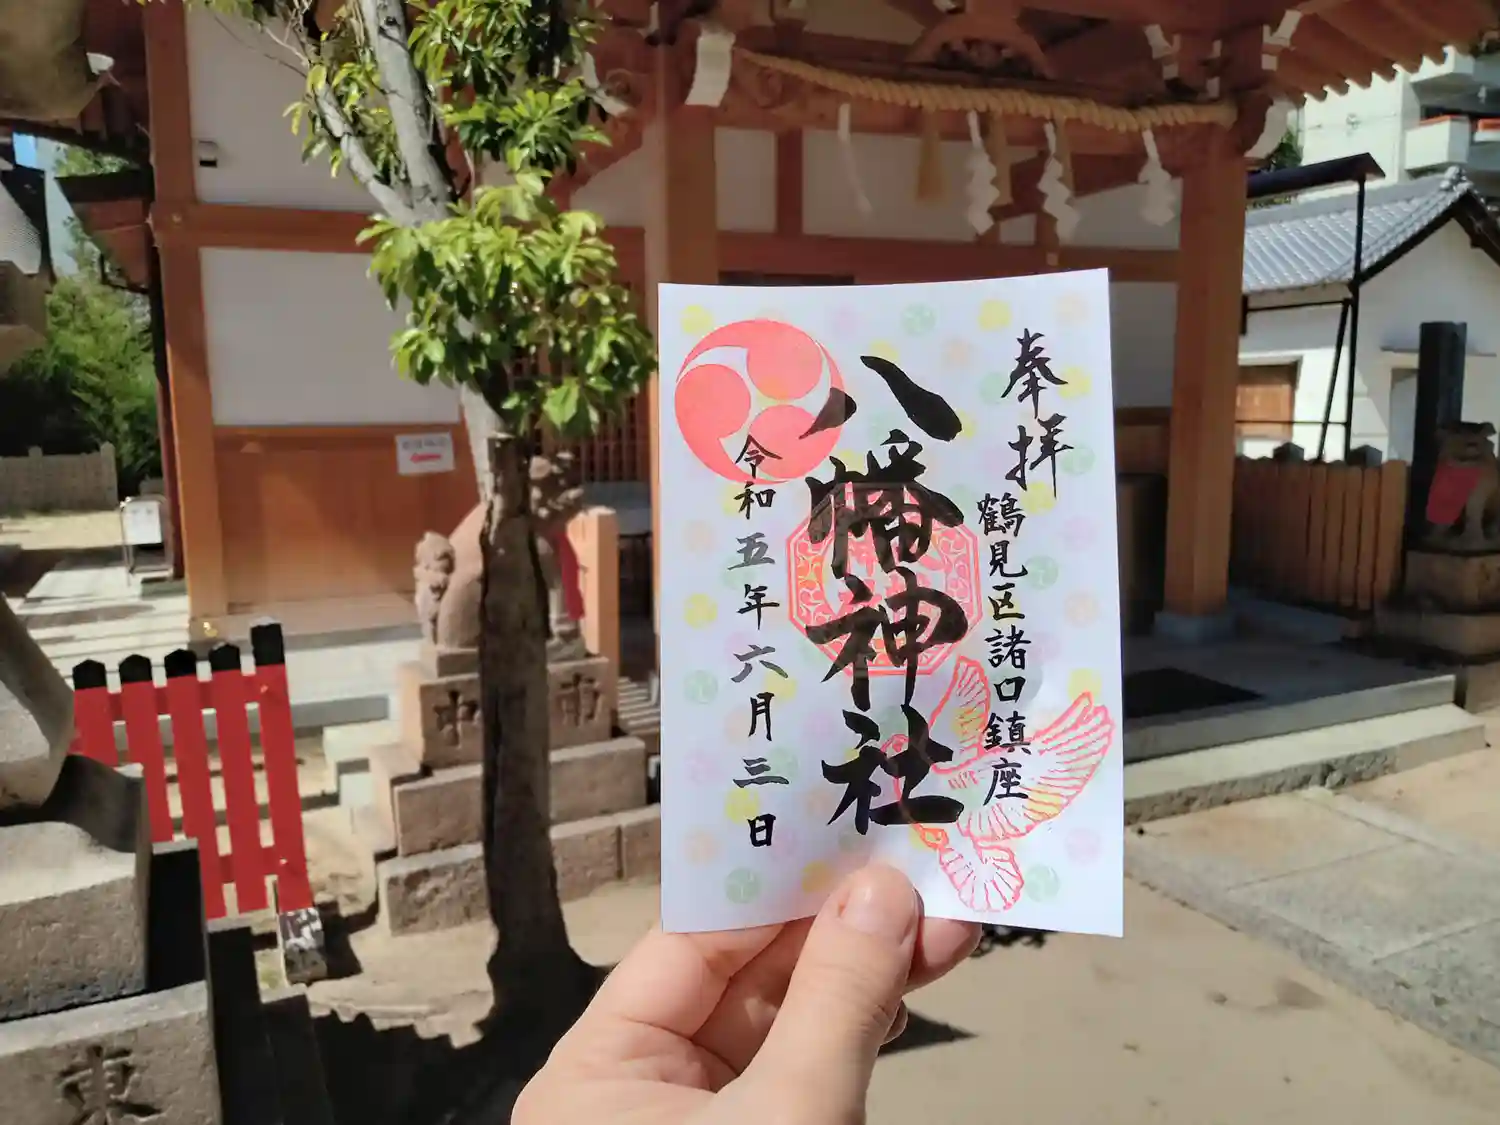 奉拝
鶴見区諸口鎮座
八幡神社
令和五年六月三日
中
東